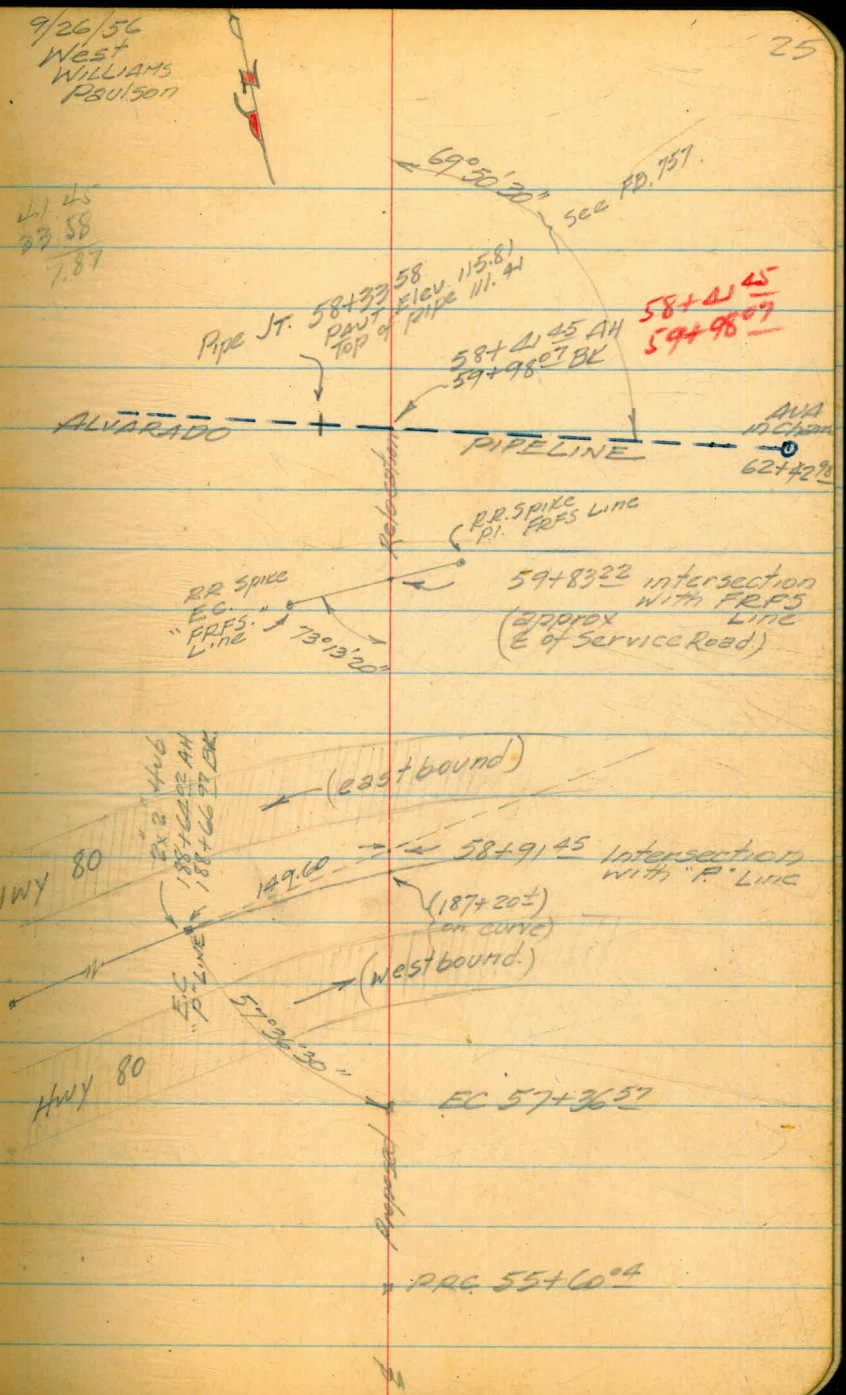 9/26/56
West
WILLIAMS
Paulson
25
41 45
33 58
7.87
69°50'20"
See FB. 757.
Pipe JT. 58+33 58
PAVT Elev. 115.81
Top of Pipe 111.41
58+41 45 AH
59+98 07 BK
58+41 45
59+98 07
ALVARADO
PIPELINE
AVA
in Cham
62+42 98
Relocation
R.R. Spike
P.I. FRFS Line
RR Spike
E.C.
"FRFS."
Line
73°13'20"
59+83 22 intersection
with FRFS
Line
(approx
℄ of Service Road)
2"x2" Hub
188+64.02 AH
188+66 97 BK
(eastbound)
HWY 80
149.60
58+91 45 Intersection
with "P." Line
(187+20±)
(on curve)
(westbound.)
E.C.
"P" LINE
57°36'30"
HWY 80
EC 57+36 57
Proposed
P.R.C. 55+60 04